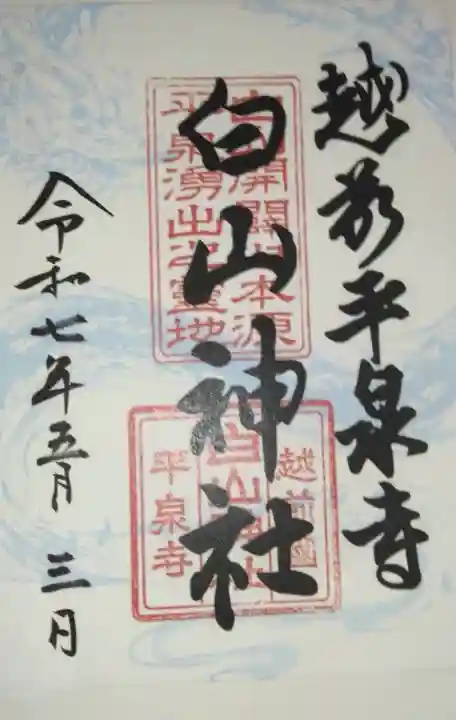 越前平泉寺
白山神社
令和七年五月三日
白山開闢之本源
平泉湧出之靈地
越前國
白山神社
平泉寺